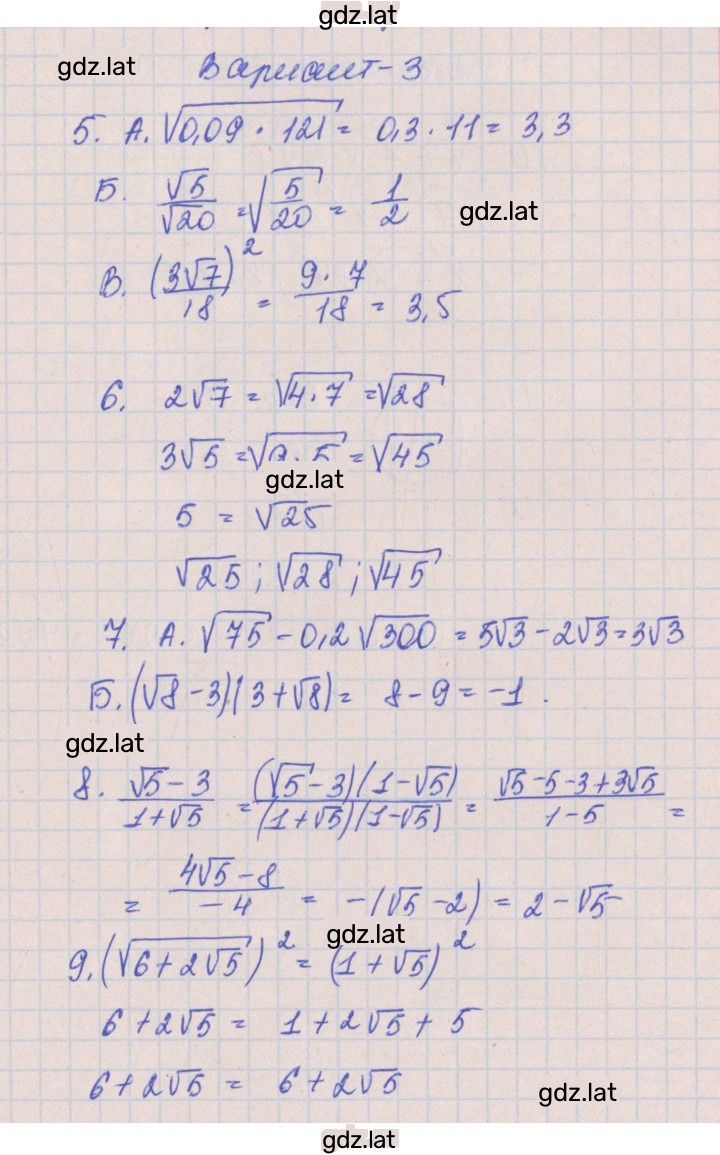 gdz.lat
gdz.lat
Вариант-3
5. А. √(0,09 · 121) = 0,3 · 11 = 3,3
Б. √5/√20 = √(5/20) = 1/2
gdz.lat
В. (3√7)²/18 = (9 · 7)/18 = 3,5
6. 2√7 = √(4 · 7) = √28
3√5 = √(9 · 5) = √45
gdz.lat
5 = √25
√25 ; √28 ; √45
7. А. √75 - 0,2√300 = 5√3 - 2√3 = 3√3
Б. (√8 - 3)(3 + √8) = 8 - 9 = -1 .
gdz.lat
8. (√5 - 3)/(1 + √5) = ((√5 - 3)(1 - √5))/((1 + √5)(1 - √5)) = (√5 - 5 - 3 + 3√5)/(1 - 5) =
= (4√5 - 8)/(-4) = -(√5 - 2) = 2 - √5
gdz.lat
9. (√(6 + 2√5))² = (1 + √5)²
6 + 2√5 = 1 + 2√5 + 5
6 + 2√5 = 6 + 2√5
gdz.lat
gdz.lat